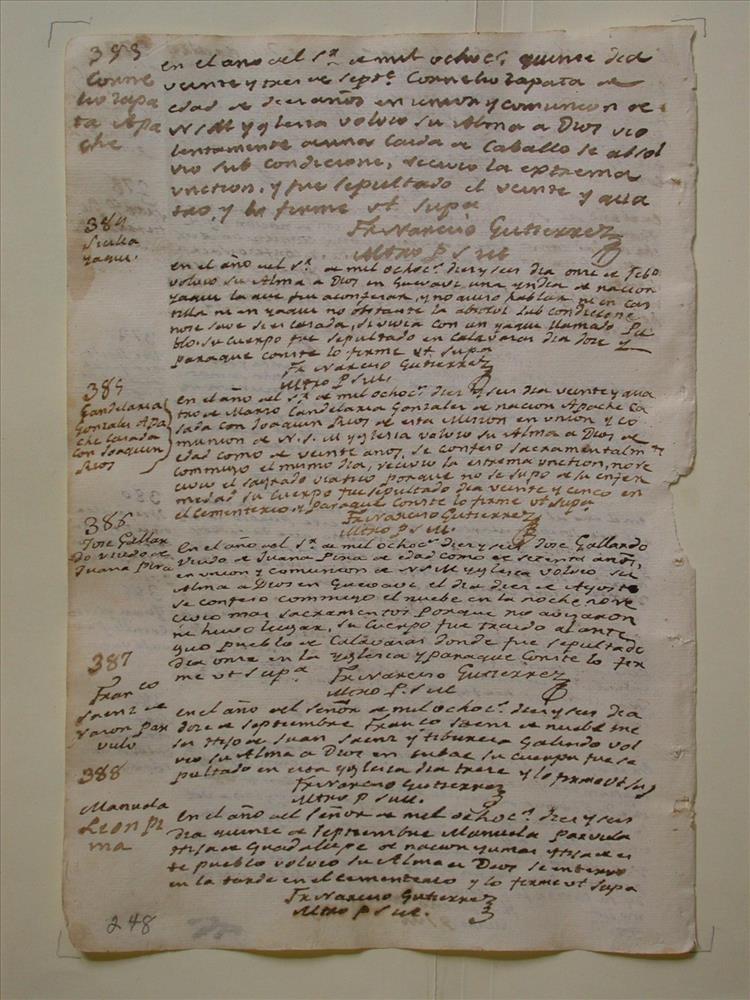 383
Corne
lio Zapa
ta Apa
che
en el año del S.r de mil ochoc.s quince dia
veinte y tres de Sept.e Cornelio Zapata de
edad de diez años en union y comunion de
N S M Yglesia volvio su Alma a Dios vio
lentamente de una Caida de Caballo se absol
vio sub condicione, recivio la extrema
vncion, y fue sepultado el veinte y qua
tro, y lo firme vt supa
Fr Narciso Gutierrez
Mtro P S M
384
Yaqui
en el año del S.r de mil ochoc.s diez y seis dia once de Feb.o
volvio su Alma a Dios en Guevavi una yndia de nacion
Yaqui la que fui a confesar, y no quiso hablar ni en cas
tilla ni en yaqui no obstante la absolvi sub condicione
no se save si es casada, si vivia con un yaqui llamado Pa
blo. su Cuerpo fue sepultado en Calavazas dia doze
para que conste lo firme vt supa
Fr Narciso Gutierrez
Mtro P S M.
385
Candelaria
Gonzales Apa
che Casada
con Joaquin
Rios
en el año del S.r de mil ochoc.s diez y seis dia veinte y qua
tro de Marzo Candelaria Gonzales de nacion Apache Ca
sada con Joaquin Rios de esta Mision en union y co
munion de N. S. M Yglesia volvio su Alma a Dios de
edad como de veinte anos, se confeso sacramentalm.te
commigo el mismo dia, recivio la extrema vnction, no re
civio el sagrado viatico porque no se supo de su enfer
medad su Cuerpo fue sepultado dia veinte y cinco en
el Cementerio, y para que conste lo firme vt supa
Fr Narciso Gutierrez
Mtro P S M.
386
Jose Gallar
do viudo de
Juana Pina
en el año del S.r de mil ochoc.s diez y seis Jose Gallardo
viudo de Juana Pina de edad como de setenta años,
en union y comunion de N S M Yglesia volvio su
Alma a Dios en Guevavi el dia diez de Agosto
se confeso commigo el nuebe en la noche, no re
civio mas sacramentos porque no avisaron
ni huvo lugar, su Cuerpo fue traido al ante
guo pueblo de Calavazas donde fue sepultado
dia once en la Yglesia y para que conste lo fir
me vt supa
Fr Narciso Gutierrez
Mtro P S M
387
Fran.co
Saenz de
razon par
vulo
en el año del Señor de mil ochoc.s diez y seis dia
doze de Septiembre Fran.co Saenz de nuebe me
ses Hijo de Juan Saenz y tiburcia Galindo vol
vio su Alma a Dios en tubac su cuerpo fue se
pultado en esta yglesia dia treze y lo firme vt sup
Fr Narciso Gutierrez
Mtro P S M.
388
Manuela
Leon pi
ma
en el año del Señor de mil ochoc.s diez y seis
dia quince de Septiembre Manuela parvula
Hija de Guadalupe de nacion yumas Hija de es
te pueblo volvio su Alma a Dios se enterro
en la tarde en el Cementerio y lo firme vt supa
Fr Narciso Gutierrez
Mtro P S M.
248